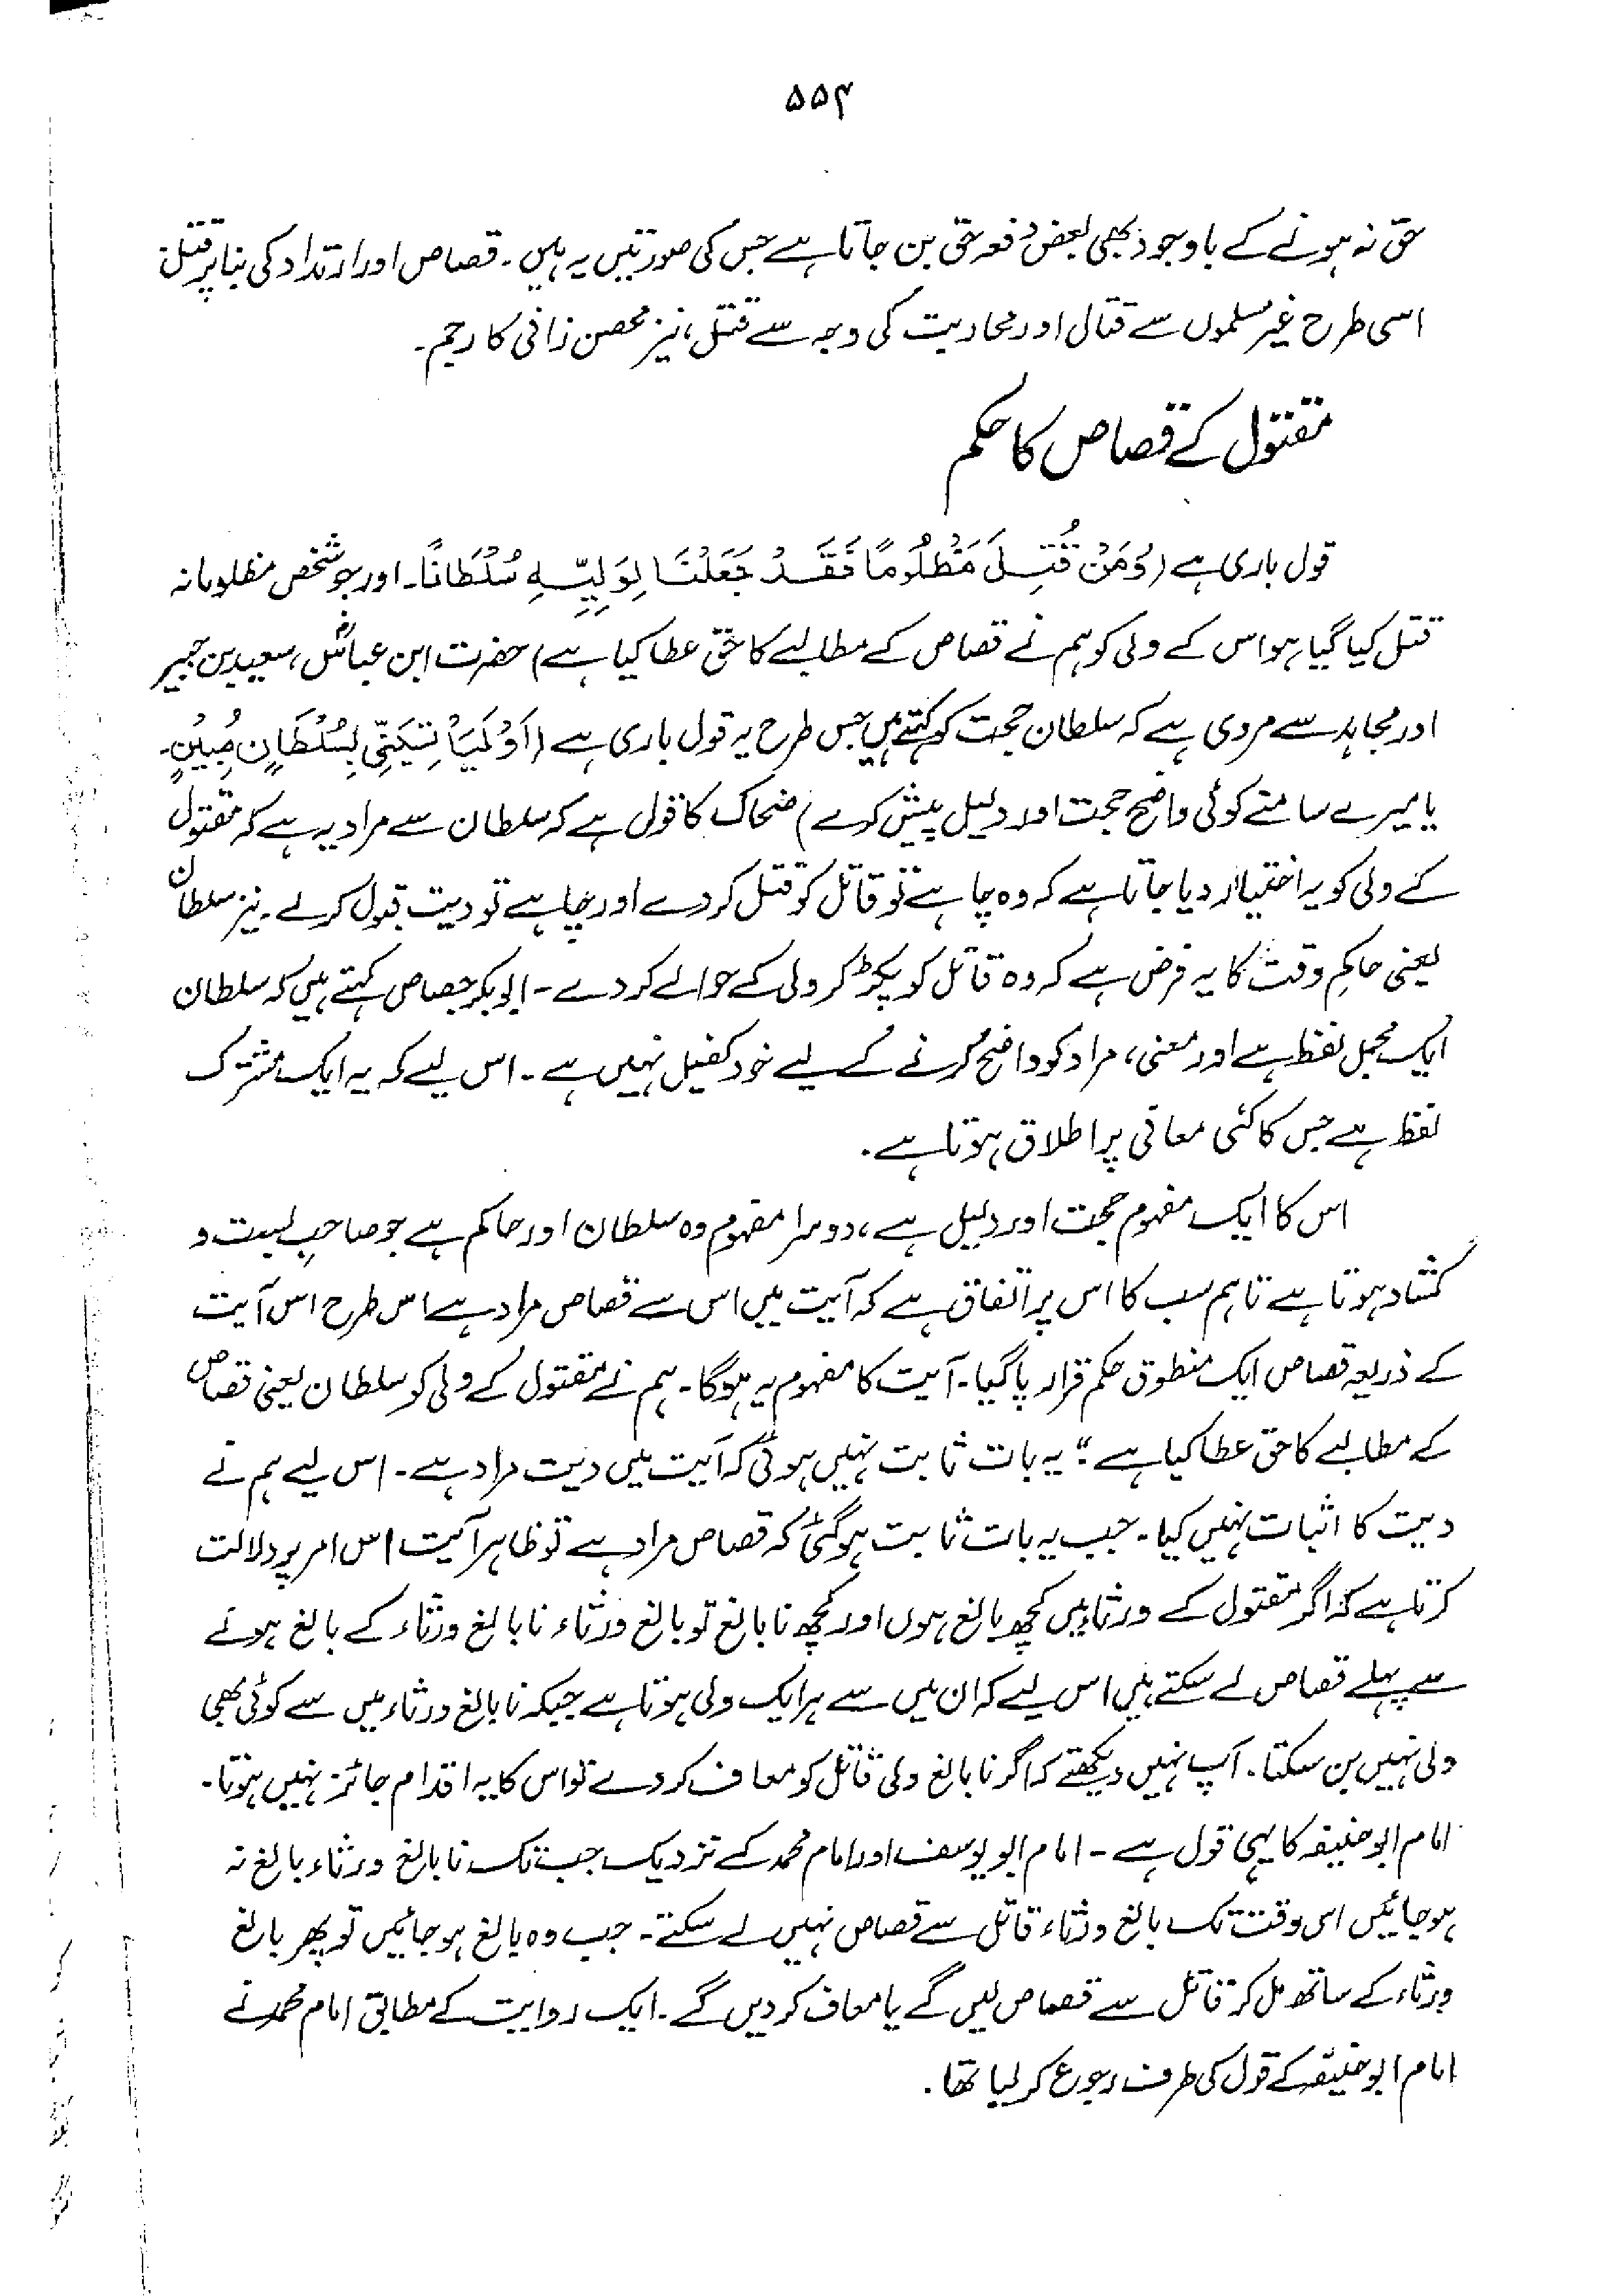 ۵۵۴
حق نہ ہونے کے باوجود بھی بعض دفعہ حق بن جاتا ہے جس کی صورتیں یہ ہیں۔ قصاص اور ارتداد کی بنا پر قتل،
اسی طرح غیر مسلموں سے قتال اور محاربت کی وجہ سے قتل، نیز محصن زانی کا رجم۔
مقتول کے قصاص کا حکم
قول باری ہے (وَمَنْ قُتِلَ مَظْلُومًا فَقَدْ جَعَلْنَا لِوَلِيِّهِ سُلْطَانًا۔ اور جو شخص مظلومانہ
قتل کیا گیا ہو اس کے ولی کو ہم نے قصاص کے مطالبے کا حق عطا کیا ہے) حضرت ابن عباسؓ، سعید بن جبیر
اور مجاہد سے مروی ہے کہ سلطان حجت کو کہتے ہیں جس طرح یہ قول باری ہے (أَوْ لَيَأْتِيَنِّي بِسُلْطَانٍ مُبِيْنٍ۔
یا میرے سامنے کوئی واضح حجت اور دلیل پیش کرے) ضحاک کا قول ہے کہ سلطان سے مراد یہ ہے کہ مقتول
کے ولی کو یہ اختیار دیا جاتا ہے کہ وہ چاہے تو قاتل کو قتل کر دے اور چاہے تو دیت قبول کر لے۔ نیز سلطان
یعنی حاکمِ وقت کا یہ فرض ہے کہ وہ قاتل کو پکڑ کر ولی کے حوالے کر دے۔ ابو بکر جصاص کہتے ہیں کہ سلطان
ایک مجمل لفظ ہے اور معنی، مراد کو واضح کرنے کے لیے خود کفیل نہیں ہے۔ اس لیے کہ یہ ایک مشترک
لفظ ہے جس کا کئی معانی پر اطلاق ہوتا ہے۔
اس کا ایک مفہوم حجت اور دلیل ہے، دوسرا مفہوم وہ سلطان اور حاکم ہے جو صاحبِ بست و
کشاد ہوتا ہے تاہم سب کا اس پر اتفاق ہے کہ آیت میں اس سے قصاص مراد ہے اس طرح اس آیت
کے ذریعہ قصاص ایک منطوق حکم قرار پا گیا۔ آیت کا مفہوم یہ ہوگا۔ ہم نے مقتول کے ولی کو سلطان یعنی قصاص
کے مطالبے کا حق عطا کیا ہے“ یہ بات ثابت نہیں ہوئی کہ آیت میں دیت مراد ہے۔ اس لیے ہم نے
دیت کا اثبات نہیں کیا۔ جب یہ بات ثابت ہو گئی کہ قصاص مراد ہے تو ظاہر آیت اس امر پر دلالت
کرتا ہے کہ اگر مقتول کے ورثاء میں کچھ بالغ ہوں اور کچھ نابالغ تو بالغ ورثاء نابالغ ورثاء کے بالغ ہونے
سے پہلے قصاص لے سکتے ہیں اس لیے کہ ان میں سے ہر ایک ولی ہوتا ہے جبکہ نابالغ ورثاء میں سے کوئی بھی
ولی نہیں بن سکتا۔ آپ نہیں دیکھتے کہ اگر نابالغ ولی قاتل کو معاف کر دے تو اس کا یہ اقدام جائز نہیں ہوتا۔
امام ابو حنیفہ کا یہی قول ہے۔ امام ابو یوسف اور امام محمد کے نزدیک جب تک نابالغ ورثاء بالغ نہ
ہو جائیں اس وقت تک بالغ ورثاء قاتل سے قصاص نہیں لے سکتے۔ جب وہ بالغ ہو جائیں تو پھر بالغ
ورثاء کے ساتھ مل کر قاتل سے قصاص لیں گے یا معاف کر دیں گے۔ ایک روایت کے مطابق امام محمد نے
امام ابو حنیفہ کے قول کی طرف رجوع کر لیا تھا۔